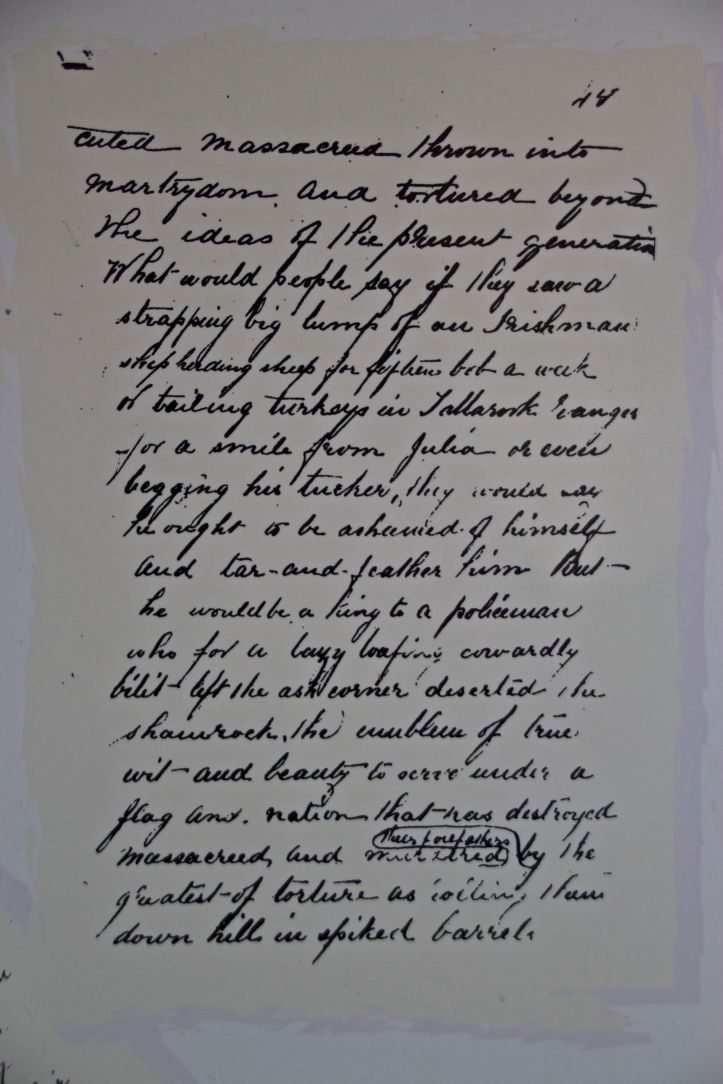 48
cuted massacreed thrown into
martrydom. and tortured beyond
the ideas of the present generation
What would people say if they saw a
strapping big lump of an Irishman
shepherding sheep for fifteen bob a week
or tailing turkeys in Tallarook ranges
for a smile from Julia or even
begging his tucker, they would say
he ought to be ashamed of himself
and tar-and-feather him But
he would be a king to a policeman
who for a lazy loafing cowardly
bilit left the ash corner deserted the
shamrock, the emblem of true
wit and beauty to serve under a
flag and nation that has destroyed
massacreed and murdered their forefathers by the
greatest of torture as rolling them
down hill in spiked barrels